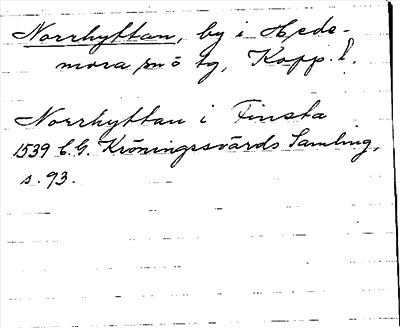 Norrhyttan, by i Hede-
mora sn o tg, Kopp. l.
Norrhyttan i Finsta
1539 C.G. Kröningssvärds Samling,
s. 93.